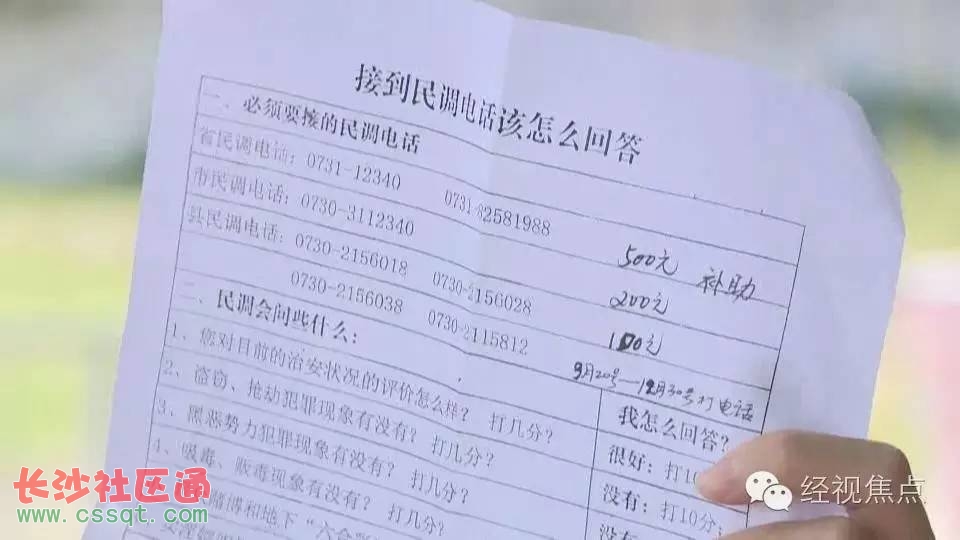 接到民调电话该怎么回答
一、必须要接的民调电话
省民调电话：0731-12340 0731-82581988 500元 补助
市民调电话：0730-3112340 200元
县民调电话：0730-2156018 0730-2156028 100元
0730-2156038 0730-2115812 9月20号—12月30号打电话
二、民调会问些什么： 我怎么回答？
1、您对目前的治安状况的评价怎么样？ 打几分？ 很好：打10
2、盗窃、抢劫犯罪现象有没有？ 打几分？ 没有：打10分；
3、黑恶势力犯罪现象有没有？ 打几分？ 没有
4、吸毒、贩毒现象有没有？ 打几分？
赌博和地下“六合彩
长沙社区通
www.cssqt.com
经视焦点